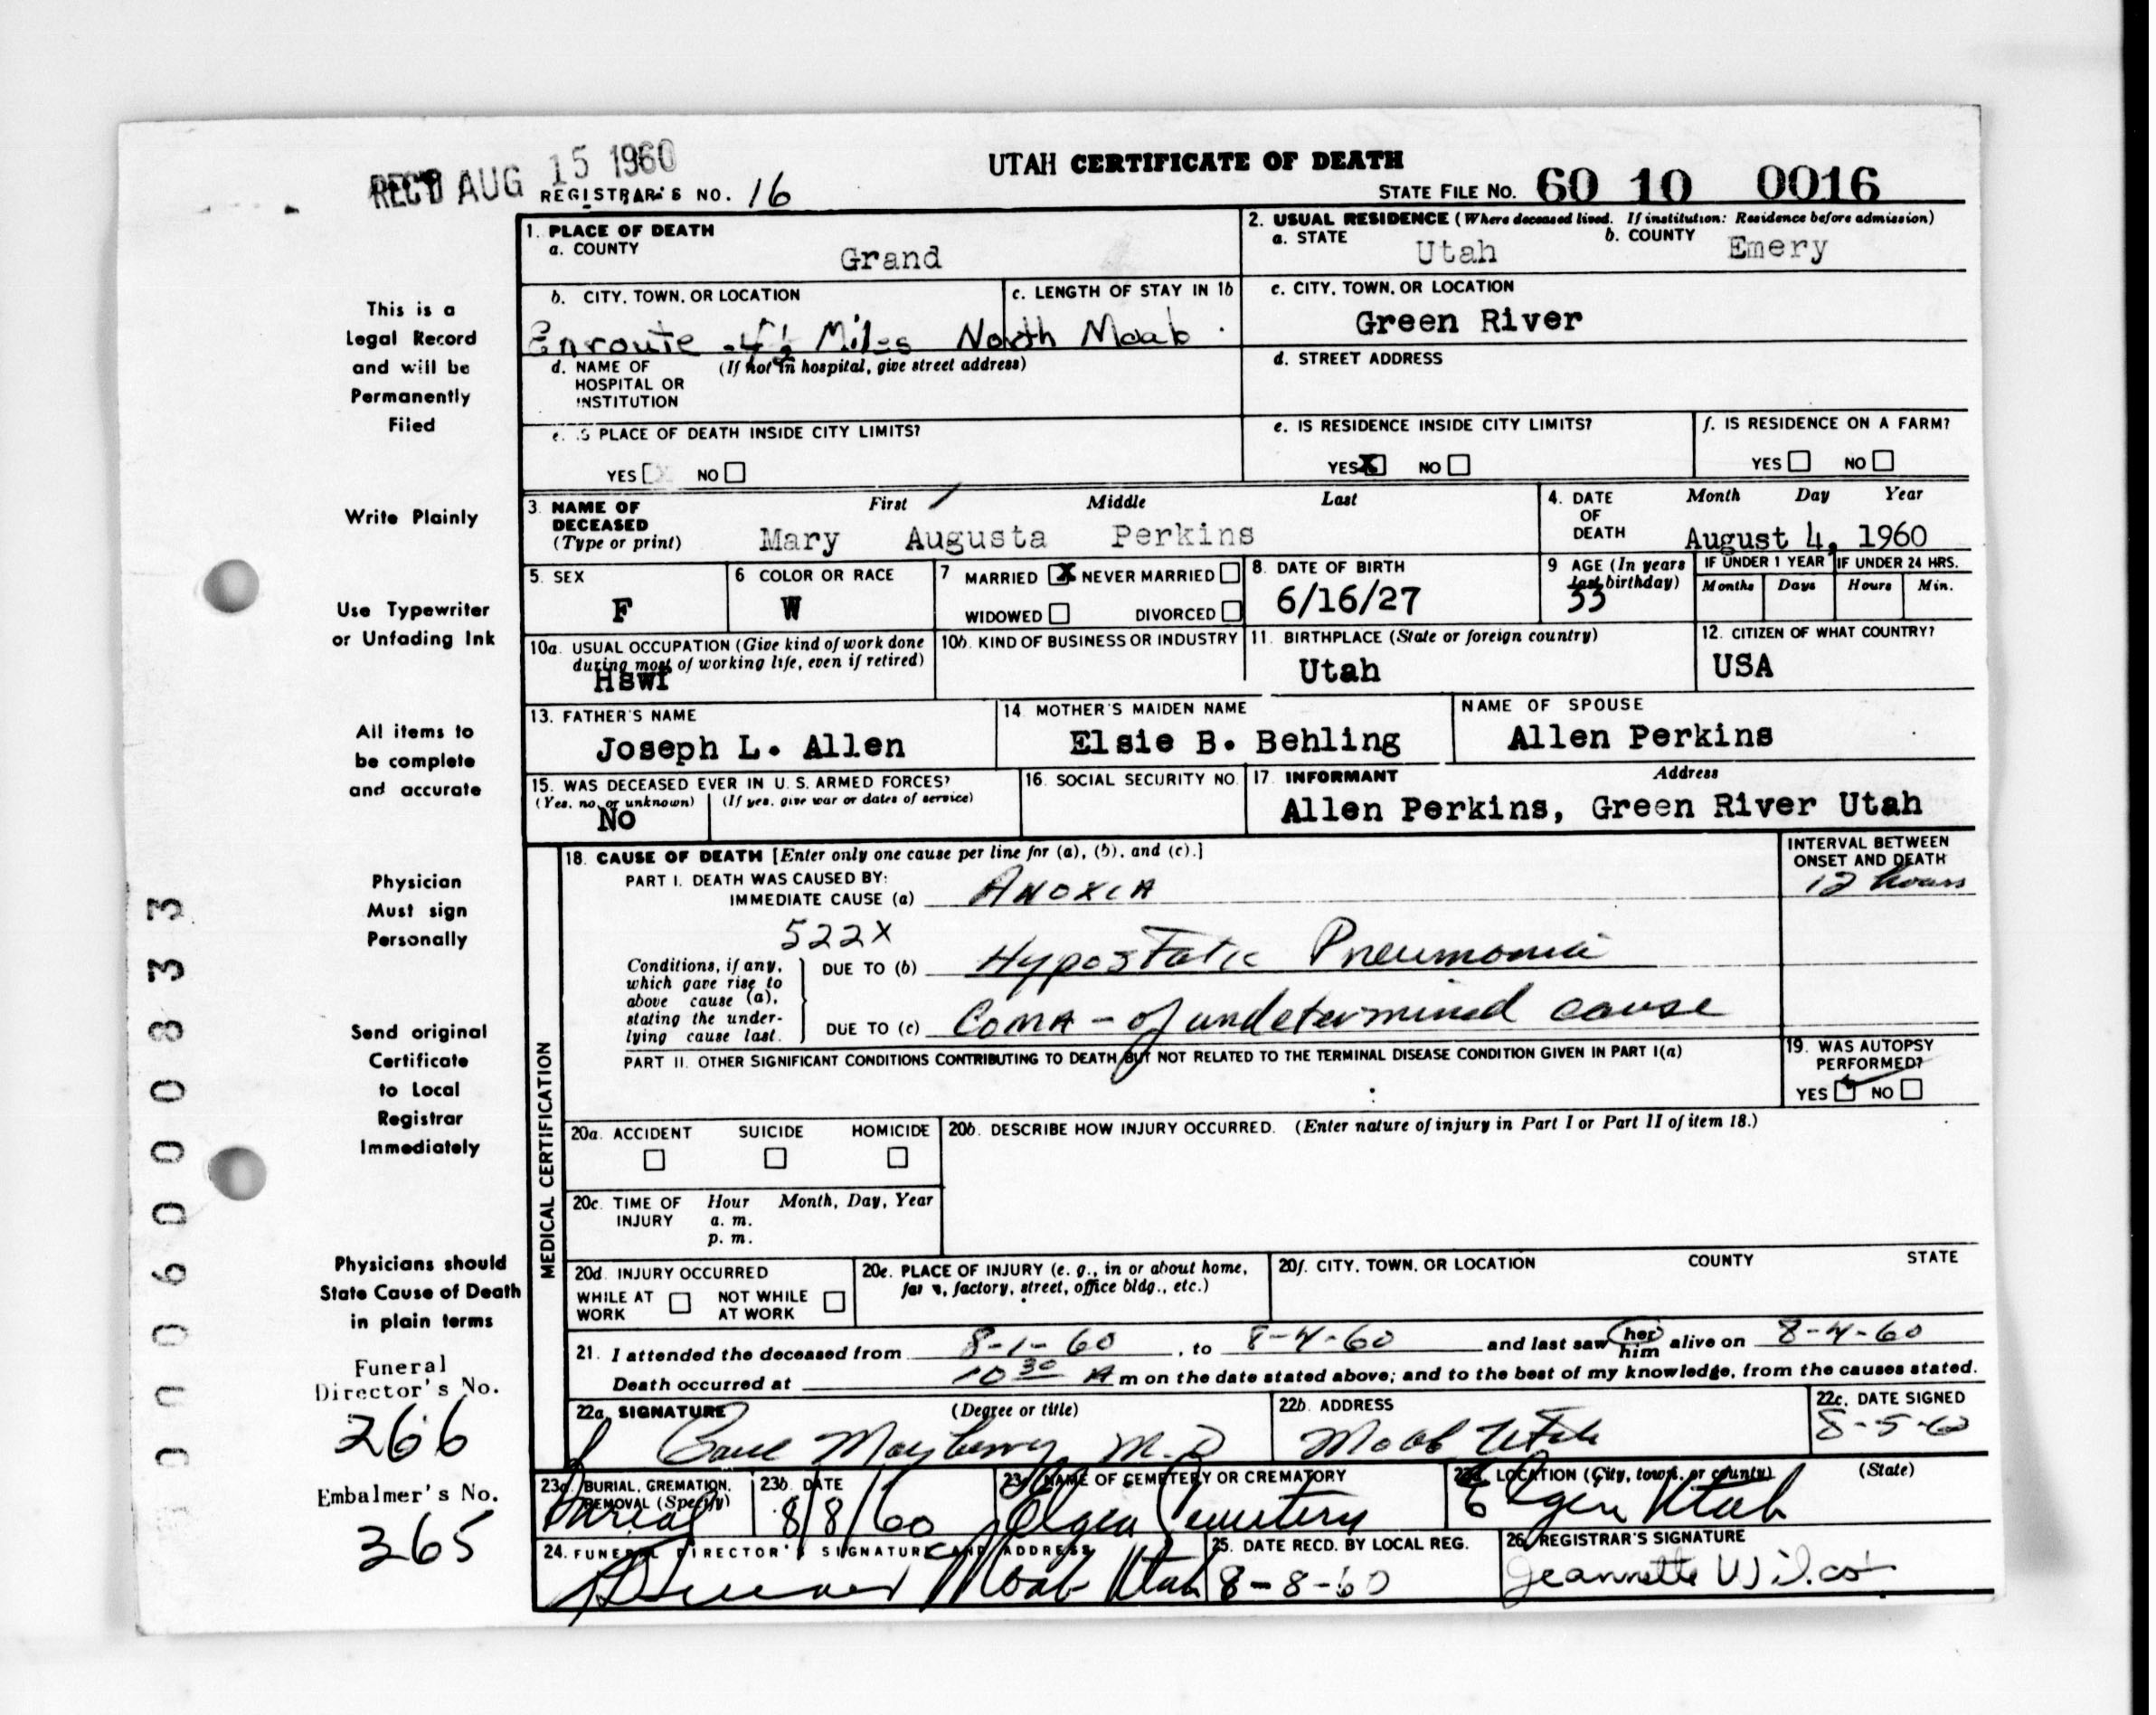 REC'D AUG 15 1960
UTAH CERTIFICATE OF DEATH
REGISTRAR'S NO. 16
STATE FILE NO. 60 10 0016
1. PLACE OF DEATH
a. COUNTY
Grand
2. USUAL RESIDENCE (Where deceased lived. If institution: Residence before admission)
a. STATE
Utah
b. COUNTY
Emery
b. CITY, TOWN, OR LOCATION
c. LENGTH OF STAY IN 1b
Enroute Miles North Moab
c. CITY, TOWN, OR LOCATION
Green River
d. NAME OF HOSPITAL OR INSTITUTION
(If not in hospital, give street address)
d. STREET ADDRESS
e. IS PLACE OF DEATH INSIDE CITY LIMITS?
YES NO
e. IS RESIDENCE INSIDE CITY LIMITS?
YES X NO
f. IS RESIDENCE ON A FARM?
YES NO
3. NAME OF DECEASED
(Type or print)
First Middle Last
Mary Augusta Perkins
4. DATE OF DEATH
Month Day Year
August 4, 1960
5. SEX
F
6 COLOR OR RACE
W
7 MARRIED X NEVER MARRIED
WIDOWED DIVORCED
8. DATE OF BIRTH
6/16/27
9 AGE (In years last birthday)
33
IF UNDER 1 YEAR
Months Days
IF UNDER 24 HRS.
Hours Min.
10a. USUAL OCCUPATION (Give kind of work done during most of working life, even if retired)
Hswf
10b. KIND OF BUSINESS OR INDUSTRY
11. BIRTHPLACE (State or foreign country)
Utah
12. CITIZEN OF WHAT COUNTRY?
USA
13. FATHER'S NAME
Joseph L. Allen
14 MOTHER'S MAIDEN NAME
Elsie B. Behling
NAME OF SPOUSE
Allen Perkins
15. WAS DECEASED EVER IN U. S. ARMED FORCES?
(Yes, no, or unknown) (If yes, give war or dates of service)
No
16. SOCIAL SECURITY NO.
17. INFORMANT Address
Allen Perkins, Green River Utah
MEDICAL CERTIFICATION
18. CAUSE OF DEATH [Enter only one cause per line for (a), (b), and (c).]
INTERVAL BETWEEN ONSET AND DEATH
12 hours
PART I. DEATH WAS CAUSED BY:
IMMEDIATE CAUSE (a) Anoxia
522X
Conditions, if any, which gave rise to above cause (a), stating the underlying cause last.
DUE TO (b) Hypostatic Pneumonia
DUE TO (c) Coma - of undetermined cause
PART II. OTHER SIGNIFICANT CONDITIONS CONTRIBUTING TO DEATH BUT NOT RELATED TO THE TERMINAL DISEASE CONDITION GIVEN IN PART I(a)
19. WAS AUTOPSY PERFORMED?
YES NO
20a. ACCIDENT SUICIDE HOMICIDE
20b. DESCRIBE HOW INJURY OCCURRED. (Enter nature of injury in Part I or Part II of item 18.)
20c. TIME OF INJURY
Hour Month, Day, Year
a. m.
p. m.
20d. INJURY OCCURRED
WHILE AT WORK NOT WHILE AT WORK
20e. PLACE OF INJURY (e. g., in or about home, farm, factory, street, office bldg., etc.)
20f. CITY, TOWN, OR LOCATION COUNTY STATE
21. I attended the deceased from 8-1-60, to 8-4-60 and last saw her him alive on 8-4-60
Death occurred at 10 30 A m on the date stated above; and to the best of my knowledge, from the causes stated.
22a. SIGNATURE (Degree or title)
Mayberry M.D
22b. ADDRESS
Moab Utah
22c. DATE SIGNED
8-5-60
23a. BURIAL, CREMATION, REMOVAL (Specify)
Burial
23b. DATE
8/8/60
23c. NAME OF CEMETERY OR CREMATORY
Elgen Cemetery
23d. LOCATION (City, town, or county) (State)
Elgen Utah
24. FUNERAL DIRECTOR'S SIGNATURE AND ADDRESS
Moab Utah
25. DATE RECD. BY LOCAL REG.
8-8-60
26. REGISTRAR'S SIGNATURE
Jeannette Wilcox
This is a
Legal Record
and will be
Permanently
Filed
Write Plainly
Use Typewriter
or Unfading Ink
All items to
be complete
and accurate
Physician
Must sign
Personally
Send original
Certificate
to Local
Registrar
Immediately
Physicians should
State Cause of Death
in plain terms
Funeral
Director's No.
266
Embalmer's No.
365